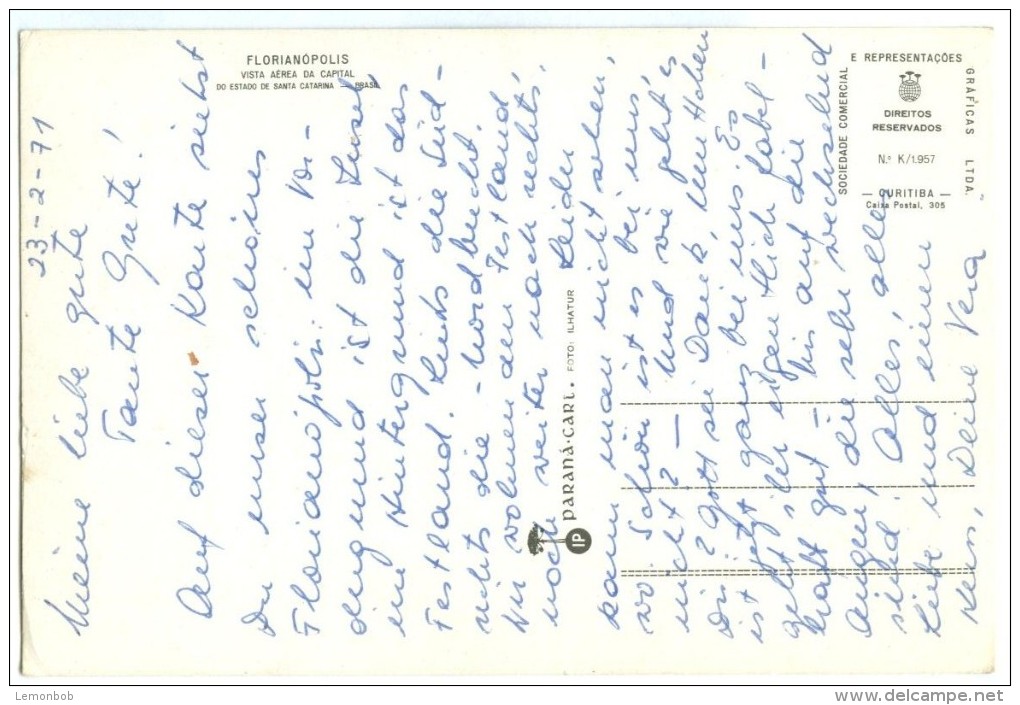 FLORIANÓPOLIS
VISTA AÉREA DA CAPITAL
DO ESTADO DE SANTA CATARINA — BRASIL
SOCIEDADE COMERCIAL E REPRESENTAÇÕES GRÁFICAS LTDA.
DIREITOS
RESERVADOS
N.º K/1.957
— CURITIBA —
Caixa Postal, 305
IP PARANÁ-CART. FOTO: ILHATUR
23-2-71
Meine liebe gute
Tante Grete!
Auf dieser Karte siehst
Du unser schönes
Florianópolis im Vor-
dergrund ist die Insel
im Hintergrund ist das
Festland. Links die Süd-
rechts die -Nordbucht.
Wir wohnen am Festland
noch weiter nach rechts.
Leider
kann man nicht sehen,
wo. Schön ist es bei uns,
nicht? — Und wie geht es
Dir? Gott sei Dank, Muttchen
ist jetzt ganz bei uns. Es
geht ihr eigentlich fabel-
haft gut — bis auf die
Augen, die sehr wechselnd
sind! Alles, alles
Liebe und einen
Kuss, Deine Vera
Lemonbob
www.delcampe.net